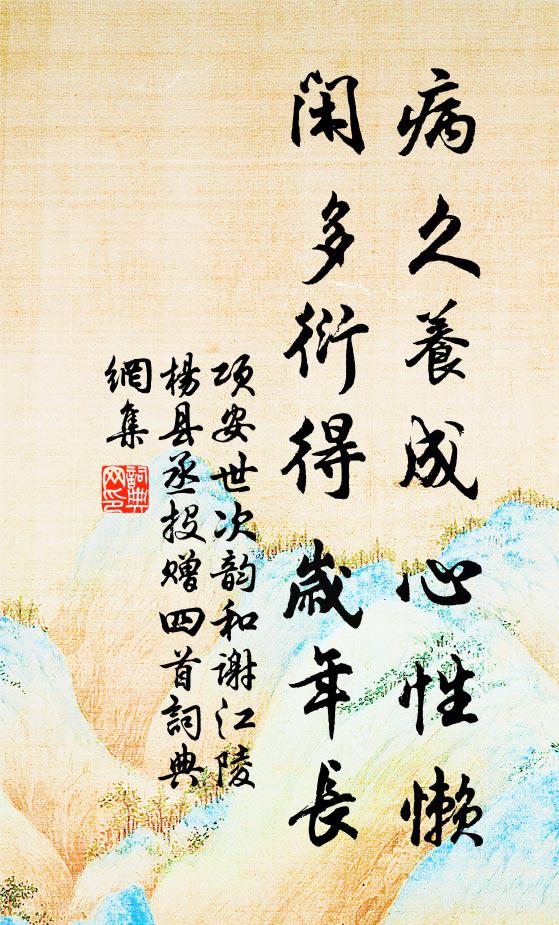 病久養成心性懶
閑多衍得歲年長
项安世次韵和谢江陵
楊县丞投赠四首詞典
網集
詞典网印